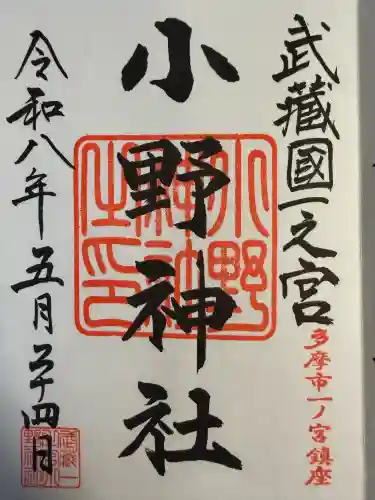 武藏國一之宮
多摩市一ノ宮鎮座
小野神社
小野神社之印
令和八年五月二十四日